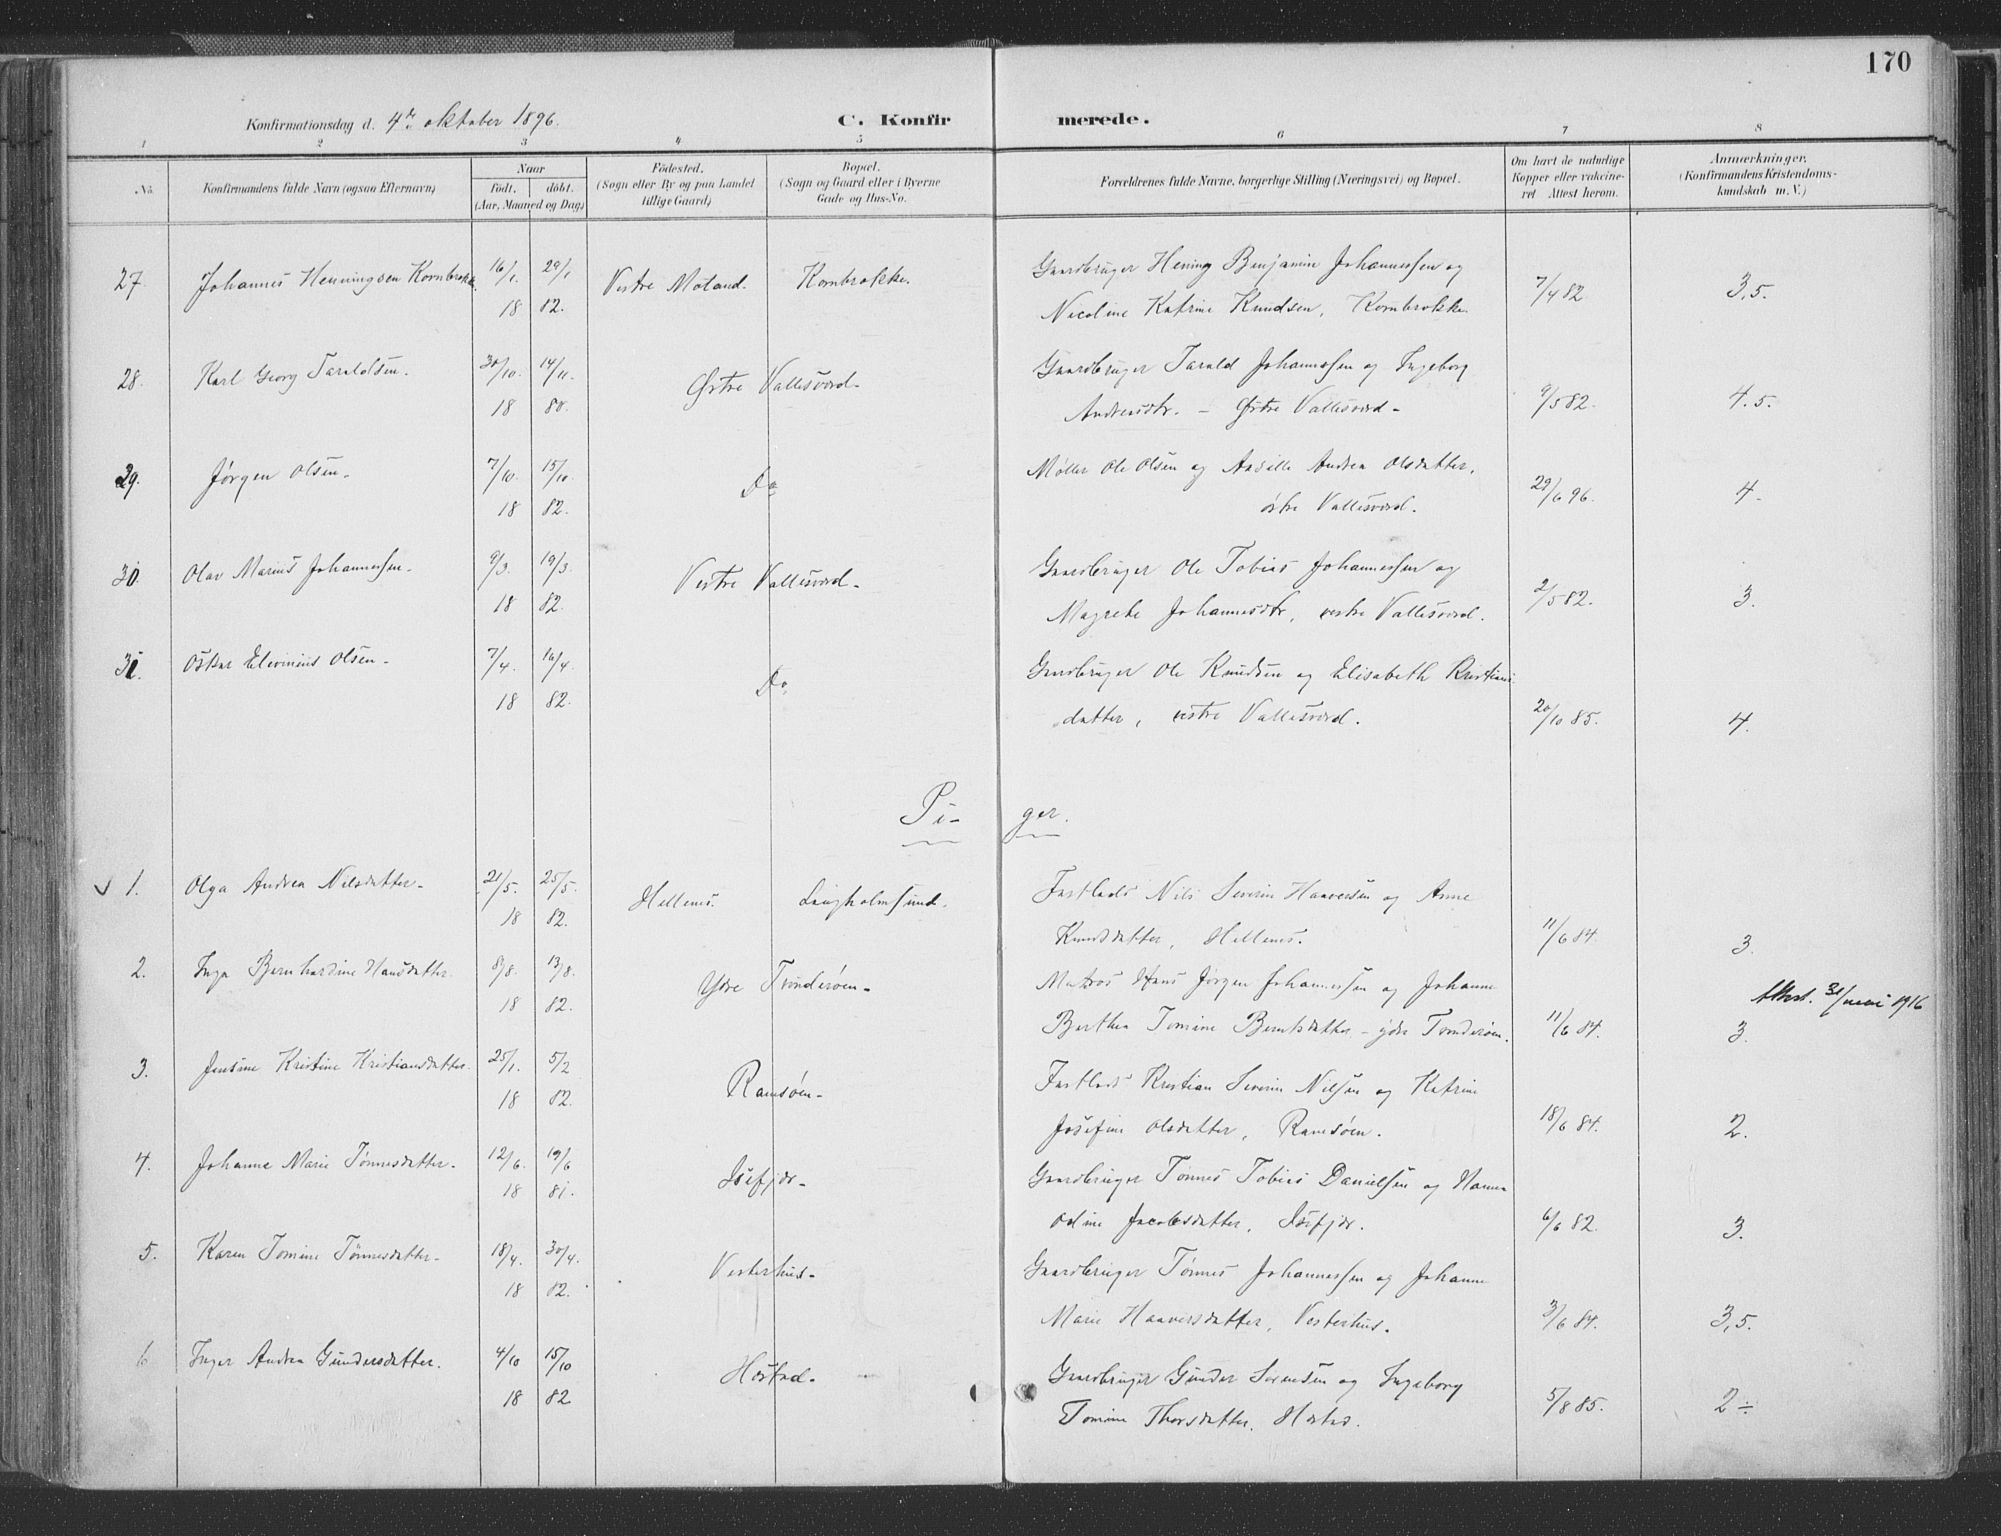 170
Konfirmationsdag d. 4de oktober 1896.
C. Konfirmerede.
1 2 3 4 5 6 7 8
No.
Konfirmandens fulde Navn (ogsaa Efternavn)
Naar
födt. döbt.
(Aar, Maaned og Dag)
Födested.
(Sogn eller By og paa Landet
tillige Gaard)
Bopæl.
(Sogn og Gaard eller i Byerne
Gade og Hus-No.
Forældrenes fulde Navne, borgerlige Stilling (Næringsvei) og Bopæl.
Om havt de naturlige
Kopper eller vakcine-
ret Attest herom.
Anmærkninger.
(Konfirmandens Kristendoms-
kundskab m. V.)
27. Johannes Henningsen Kornbrekke. 16/1. 29/1 Vestre Moland. Kornbrekke. Gaardbruger Hening Benjamin Johannesen og
18 82. Nicoline Katrine Knudsen, Kornbrekke 7/4 82 3,5.
28. Karl Georg Taraldsen. 30/10. 14/11. Østre Vallesværd. Gaardbruger Tarald Johannesen og Ingeborg
18 80. Andreasdtr. - Østre Vallesværd. 9/5 82. 4.5.
29. Jørgen Olsen. 7/10. 15/10. Do Møller Ole Olsen og Andrea Olsdatter,
18 82. østre Vallesværd. 29/6 96. 4.
30. Olav Marius Johannesen. 9/3. 19/3. Vestre Vallesværd. Gaardbruger Ole Tobias Johannesen og
18 82. Magrete Johannesdtr, vestre Vallesværd. 2/5 82. 3.
31. Oskar Olsen. 7/4. 16/4. Do. Gaardbruger Ole Knudsen og Elisabeth Kristians
18 82. datter, vestre Vallesværd. 20/10 85. 4.
Pi- ger.
1. Olga Andrea Nilsdatter. 21/5. 25/5. Hellenes. Langholmsund. Nils Severin Haaversen og Anne
18 82. Knudsdatter, Hellenes. 11/6 84. 3.
2. Inga Bernhardine Hansdatter. 8/8. 13/8. Ydre Matros Hans Jørgen Johannesen og Johanne
Attest. 31/mai 1916
18 82. Berthea Tomine Berntsdatter - ydre 11/6 84. 3.
3. Jensine Kristine Kristiansdatter. 25/1. 5/2 Ramsøen. Kristian Severin Nilsen og Katrine
18 82. Josefine Olsdatter, Ramsøen. 18/6 84. 2.
4. Johanne Marie Tønnesdatter. 12/6. 19/6 Isefjær. Gaardbruger Tønnes Tobias Danielsen og Hanna
18 81. Odine Jacobsdatter, Isefjær. 6/6 82. 3.
5. Karen Tomine Tønnesdatter. 18/4. 30/4. Vesterhus. Gaardbruger Tønnes Johannesen og Johanne
18 82. Marie Haaversdatter, Vesterhus. 3/6 84. 3,5.
6 Inger Andrea Gundersdatter. 4/10 15/10 Hæstad. Gaardbruger Gunder Sørensen og Ingeborg
18 82 Tomine Thorsdatter, Hæstad. 5/8 85. 2÷